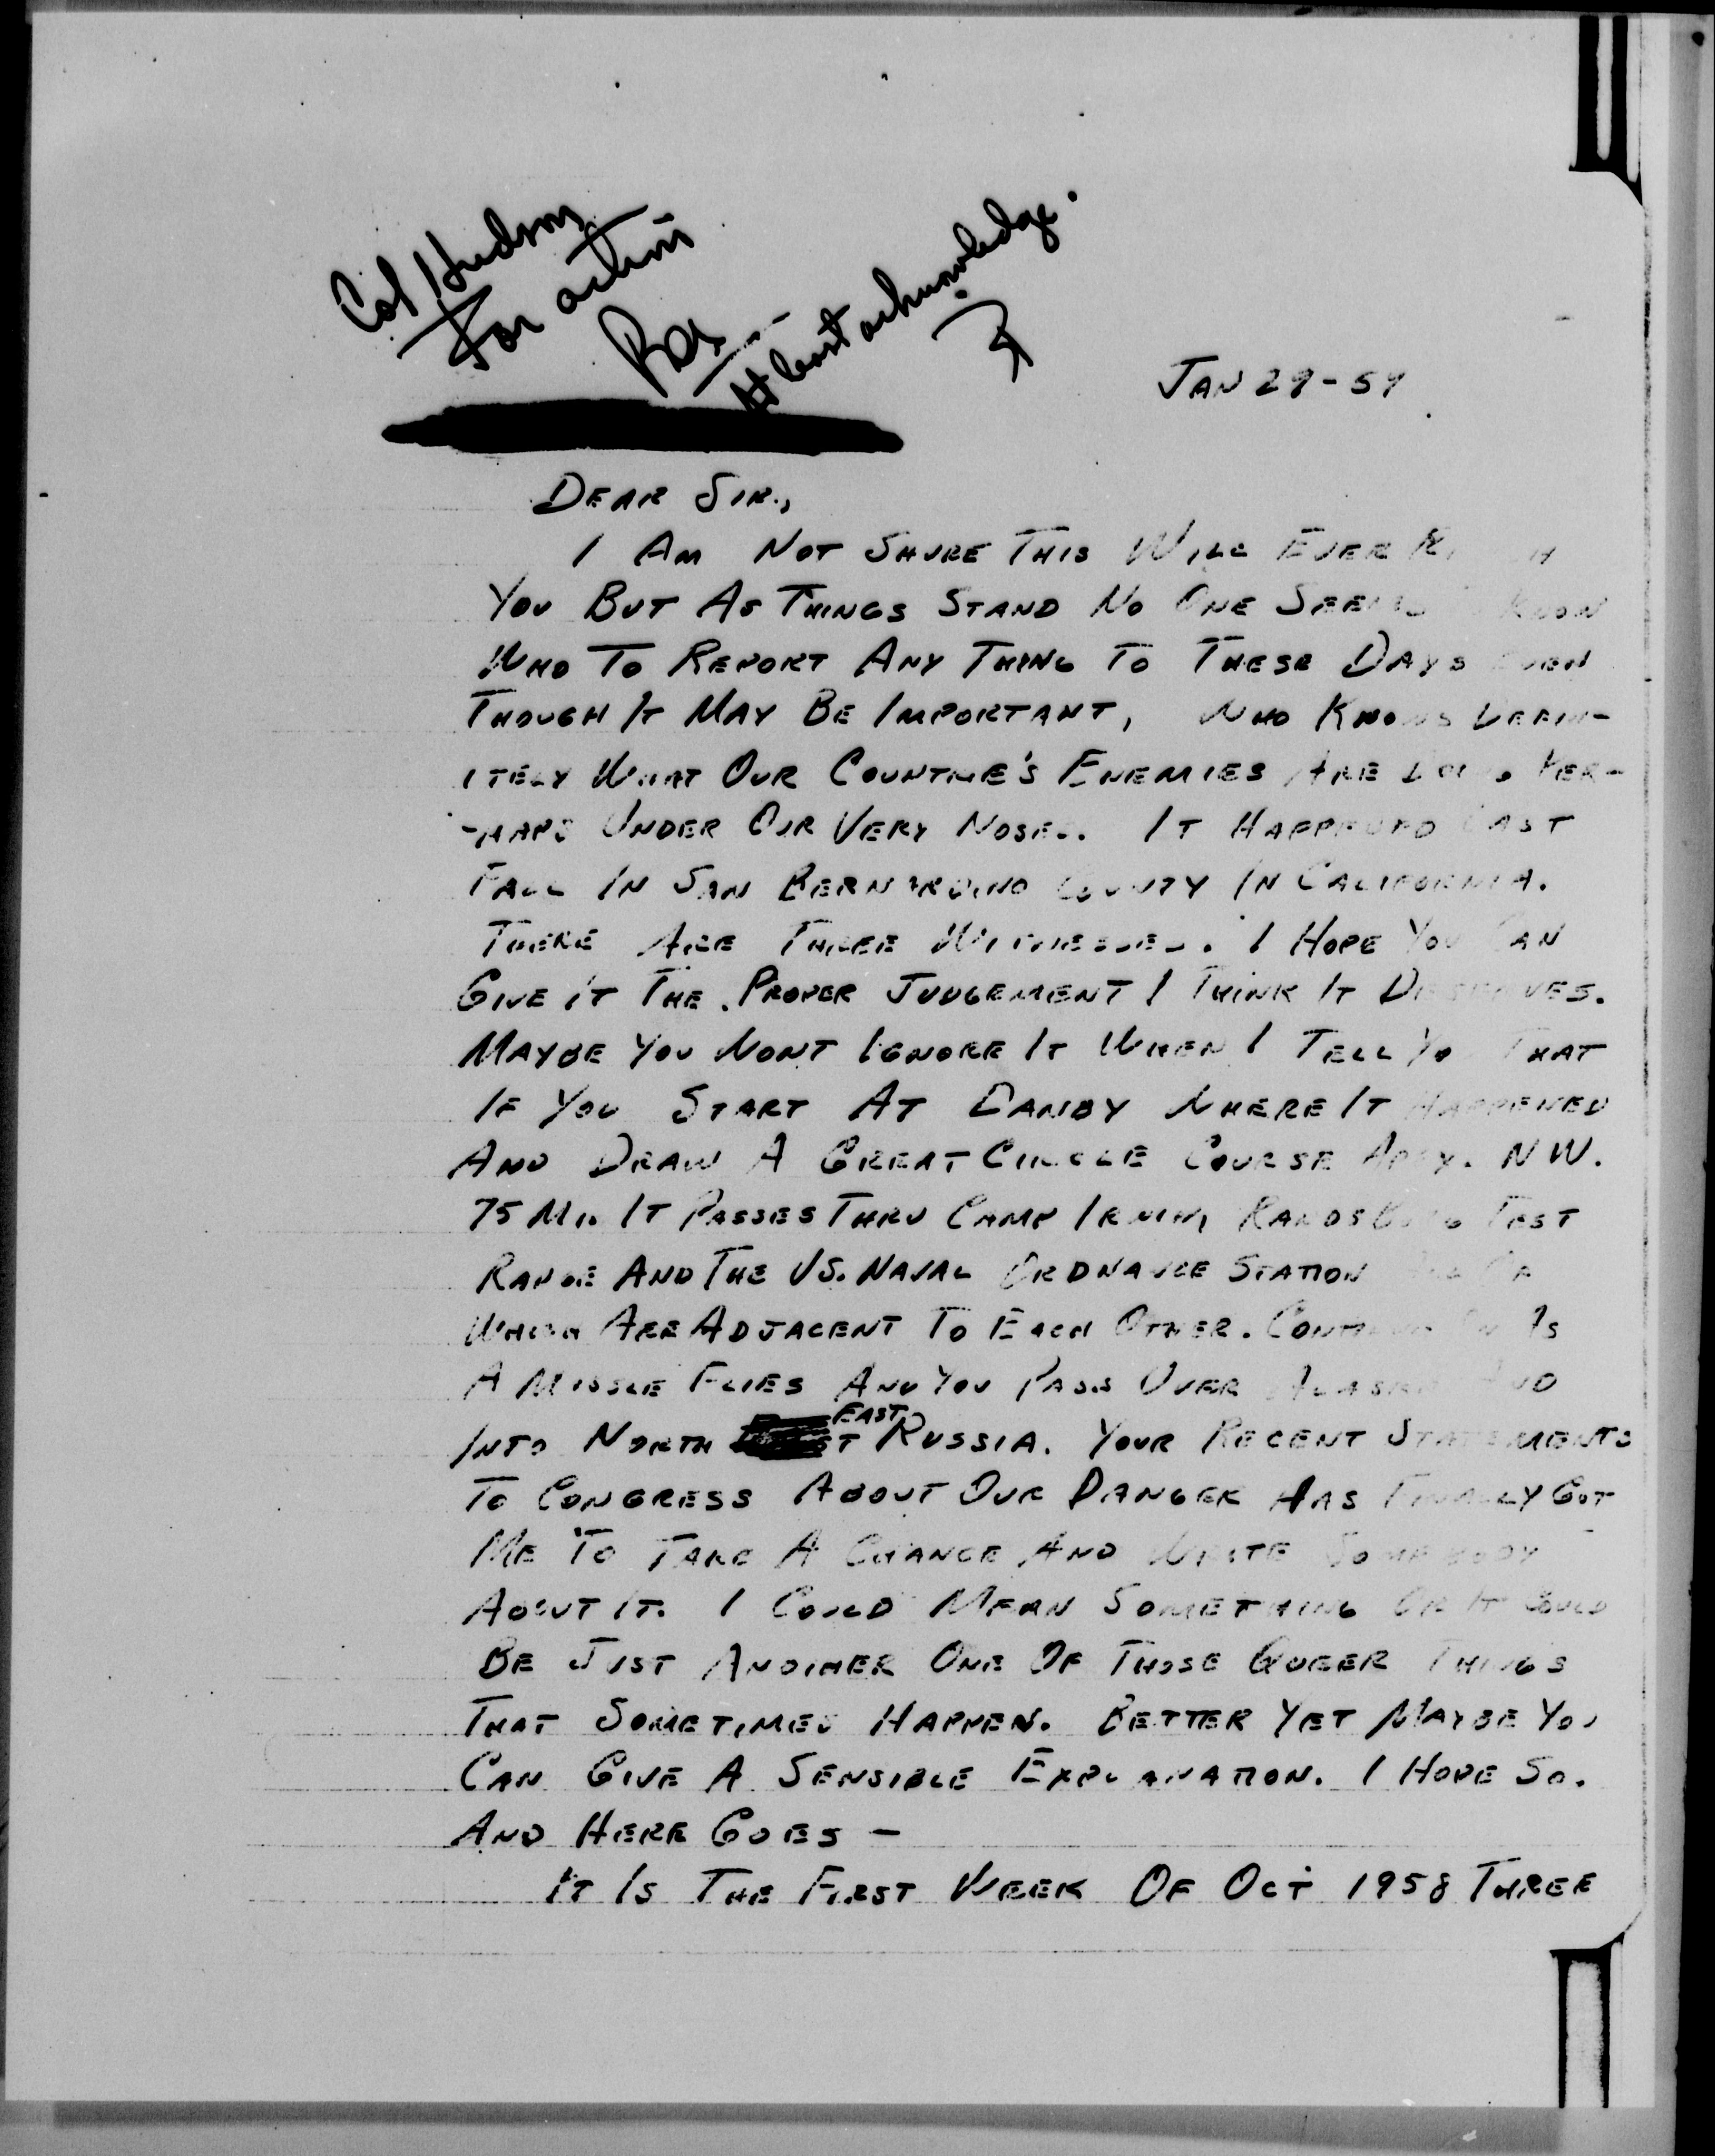 Col Hudson
For action
At least acknowledge.
JAN 29-59
DEAR SIR.,
I AM NOT SHURE THIS WILL EVER
YOU BUT AS THINGS STAND NO ONE SEEMS KNOW
WHO TO REPORT ANY THING TO THESE DAYS EVEN
THOUGH IT MAY BE IMPORTANT, WHO KNOWS DEFIN-
ITELY WHAT OUR COUNTRIE'S ENEMIES ARE DOING PER-
-HAPS UNDER OUR VERY NOSES. IT HAPPENED LAST
FALL IN SAN BERNARDINO COUNTY IN CALIFORNIA.
THERE ARE THREE WITNESSES. I HOPE YOU CAN
GIVE IT THE PROPER JUDGEMENT I THINK IT DESERVES.
MAYBE YOU WONT IGNORE IT WHEN I TELL YOU THAT
IF YOU START AT DANBY WHERE IT HAPPENED
AND DRAW A GREAT CIRCLE COURSE APPX. NW.
75 MI. IT PASSES THRU CAMP IRWIN, RANDSBURG TEST
RANGE AND THE US. NAVAL ORDNANCE STATION
WHICH ARE ADJACENT TO EACH OTHER. CONTINUE ON AS
A MISSLE FLIES AND YOU PASS OVER ALASKA AND
INTO NORTH EAST RUSSIA. YOUR RECENT STATEMENTS
TO CONGRESS ABOUT OUR DANGER HAS FINALLY GOT
ME TO TAKE A CHANCE AND WRITE SOMEBODY
ABOUT IT. I COULD MEAN SOMETHING OR IT COULD
BE JUST ANOTHER ONE OF THOSE QUEER THINGS
THAT SOMETIMES HAPPEN. BETTER YET MAYBE YOU
CAN GIVE A SENSIBLE EXPLANATION. I HOPE SO.
AND HERE GOES —
IT IS THE FIRST WEEK OF OCT 1958 THREE